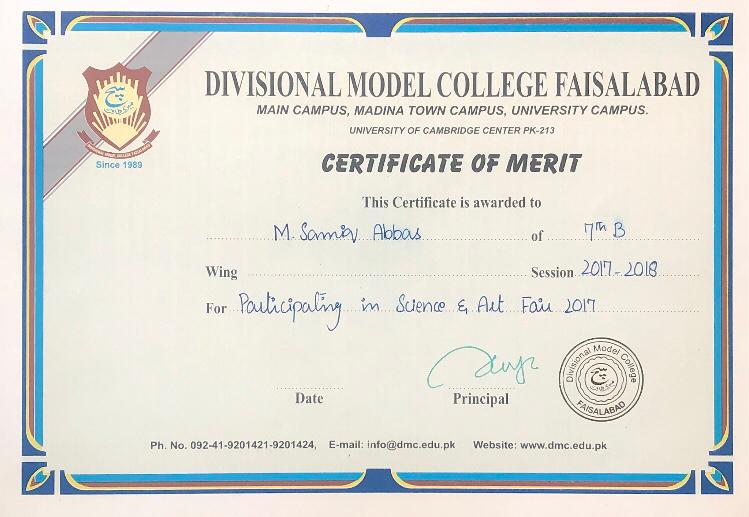 DIVISIONAL MODEL COLLEGE FAISALABAD
MAIN CAMPUS, MADINA TOWN CAMPUS, UNIVERSITY CAMPUS.
UNIVERSITY OF CAMBRIDGE CENTER PK-213
Since 1989
CERTIFICATE OF MERIT
This Certificate is awarded to
M. Samir Abbas of 7th B
Wing Session 2017-2018
For Participating in Science & Art Fair 2017
Date Principal
Divisional Model College
FAISALABAD
Ph. No. 092-41-9201421-9201424, E-mail: info@dmc.edu.pk Website: www.dmc.edu.pk